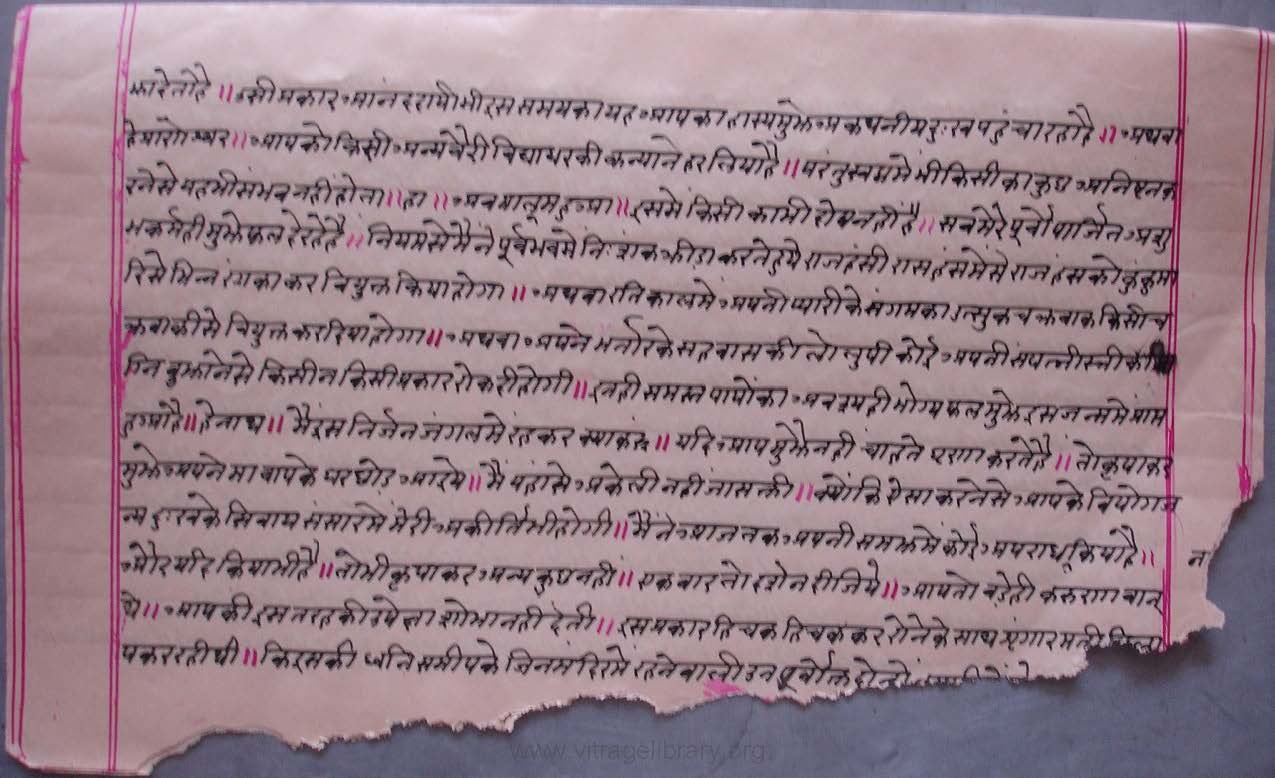 जारेतोहै ॥ उसीप्रकार आनंददायीभी इस समयका यह आपका हास्य मुझे अकथनीय दुःख पहुंचा रहा है ॥ अथवा
हे प्राणेश्वर ॥ आपको किसी अन्य वैरी विद्याधरकी कन्याने हर लिया है ॥ परंतु स्वप्नमेंभी किसीका कुछ अनिष्ट न क
रनेसे यहभी संभव नही होता ॥ हा ॥ अब मालूम हुआ ॥ इसमें किसीकाभी दोष नहीं है ॥ सब मेरे पूर्वोपार्जित अशु
भकर्मही मुझे फल देरहे है ॥ नियमसे मैंने पूर्वभवमे निःशंक क्रीडा करतेहुये राजहंसी राजहंसमेसे राजहंसको कुंकुमा
दिसे भिन्न रंगका कर वियुक्त किया होगा ॥ अथवा रतिकालमे अपनी प्यारीके संगमका उत्सुक चक्रवाक किसी च
क्रवाकीसे वियुक्त कर दिया होगा ॥ अथवा अपने भर्तारके सहवासकी लोलुपी कोई अपनी सपत्नी स्त्री
नि बुझानेसे किसी न किसी प्रकार रोक दी होगी ॥ इनही समस्त पापोंका अवश्यही भोग्य फल मुझे इस जन्ममे प्राप्त
हुआ है ॥ हे नाथ ॥ मैं इस निर्जन जंगलमे रहकर क्या करूं ॥ यदि आप मुझे नही चाहते घृणा करते है ॥ तो कृपाकर
मुझे अपने माबापके घर छोड आइये ॥ मैं यहांसे अकेली नही जा सक्ती ॥ क्योंकि ऐसा करनेसे आपके वियोगज
न्य दुःखके सिवाय संसारमे मेरी अकीर्तिभी होगी ॥ मैंने आजतक अपनी समझमें कोई अपराध किया है ॥ न
और यदि कियाभी है ॥ तोभी कृपाकर अन्य कुछ नही ॥ एकबार तो दर्शन दीजिये ॥ आप तो बडेही करुणावान्
थे ॥ आपकी इसतरहकी उपेक्षा शोभा नही देती ॥ इसप्रकार हिचक हिचककर रोनेके साथ शृंगारमती विला
पकर रही थी ॥ कि इसकी ध्वनि समीपके जिनमंदिरमे रहनेवाली उन पूर्वोक्त दोनों
www.vitragelibrary.org